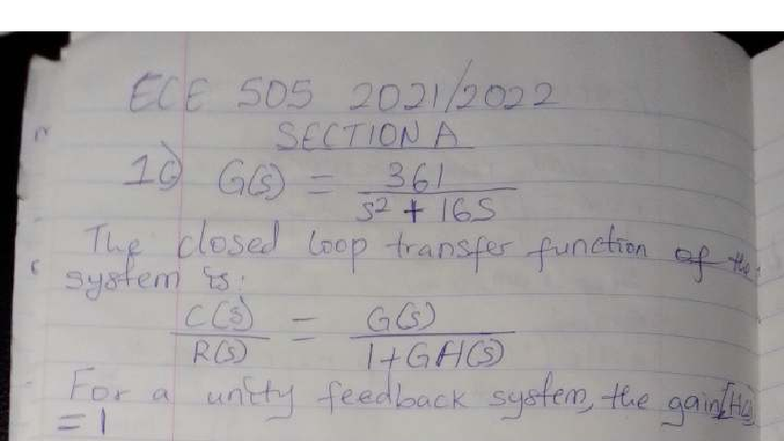 ECE 505 2021/2022
SECTION A
1c) G(s) = 361 / s² + 16s
The closed loop transfer function of the
system is:
C(s) / R(s) = G(s) / 1+GH(s)
For a unity feedback system, the gain
= 1